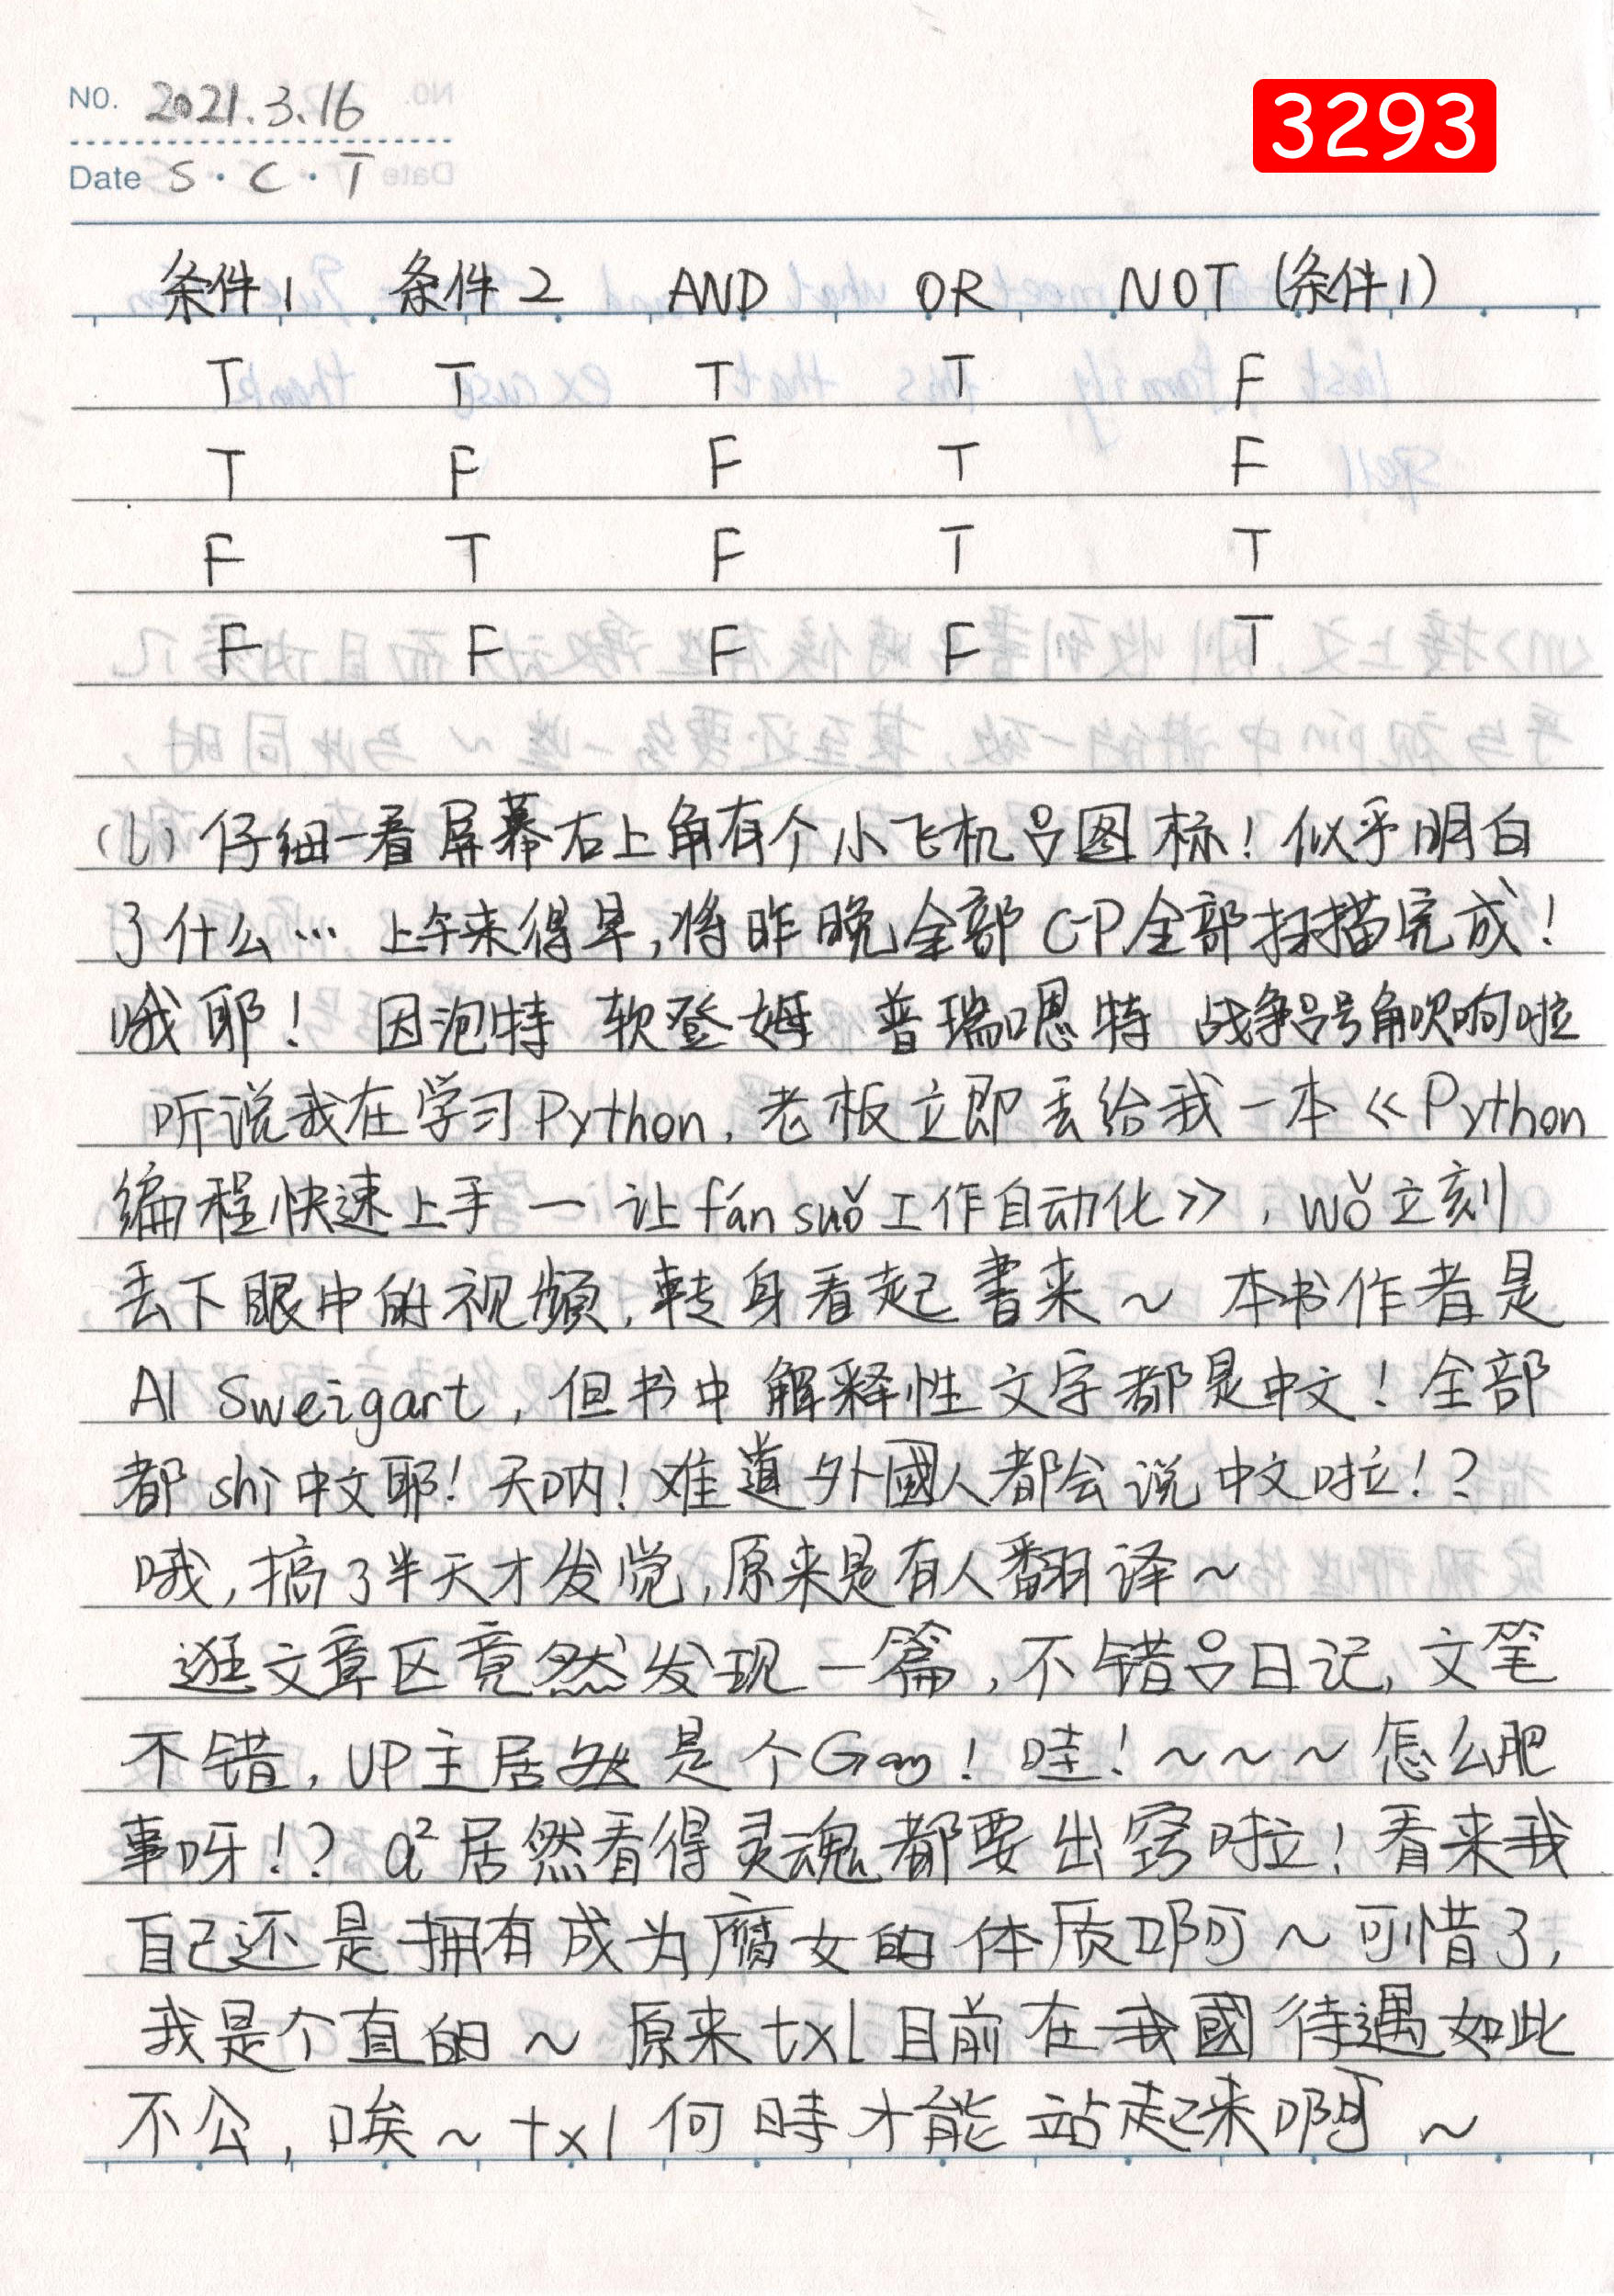 NO. 2021.3.16
3293
Date S·C·T
条件1 条件2 AND OR NOT (条件1)
T T T T F
T F F T F
F T F T T
F F F F T
(l) 仔细一看屏幕右上角有个小飞机图标！似乎明白
了什么… 上午来得早,将昨晚全部C-P全部扫描完成！
哦耶！ 因泡特 软登姆 普瑞嗯特 战争号角吹响啦
听说我在学习Python, 老板立即丢给我一本《Python
编程快速上手 一 让fán suǒ工作自动化》, wǒ立刻
丢下眼中的视频,转身看起書来～ 本书作者是
Al Sweigart, 但书中解释性文字都是中文！全部
都shì中文耶！天呐！难道外國人都会说中文啦！？
哦,搞了半天才发觉,原来是有人翻译～
逛文章区竟然发现一篇,不错日记,文笔
不错, UP主居然是个Gay！哇！～～～怎么肥
事呀！？a²居然看得灵魂都要出窍啦！看来我
自己还是拥有成为腐女的体质啊～可惜了,
我是个直的～ 原来txl目前在我國待遇如此
不公, 唉～txl何時才能站起来啊～